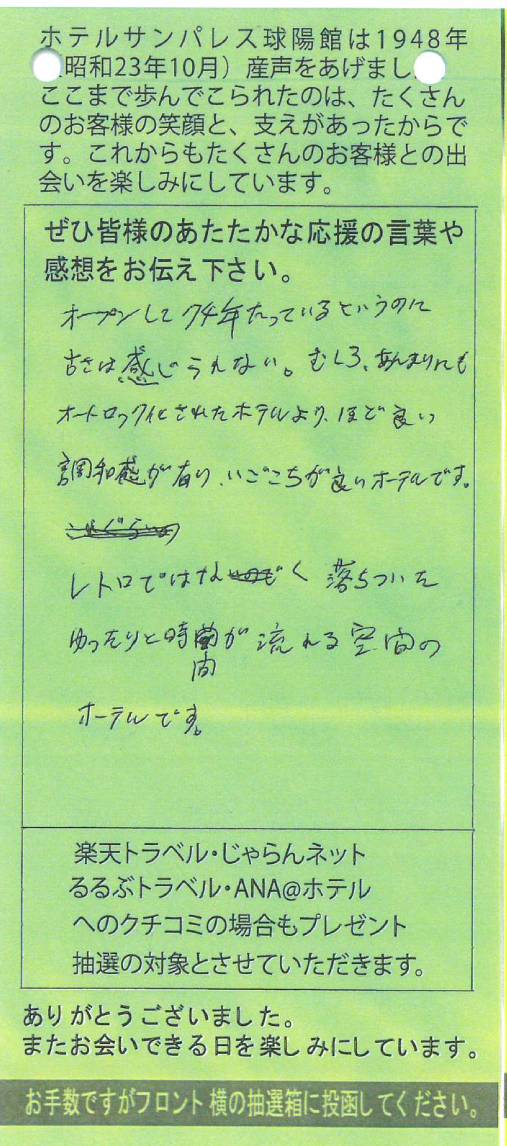 ホテルサンパレス球陽館は1948年
昭和23年10月）産声をあげまし
ここまで歩んでこられたのは、たくさん
のお客様の笑顔と、支えがあったからで
す。これからもたくさんのお客様との出
会いを楽しみにしています。
ぜひ皆様のあたたかな応援の言葉や
感想をお伝え下さい。
オープンして74年たっているというのに
古さは感じられない。むしろ、あんまりにも
オートロック化されたホテルより、ほど良い
調和感が有り、いごこちが良いホテルです。
レトロではなく 落ちついた
ゆったりと時間が流れる空間の
ホテルです。
楽天トラベル・じゃらんネット
るるぶトラベル・ANA@ホテル
へのクチコミの場合もプレゼント
抽選の対象とさせていただきます。
ありがとうございました。
またお会いできる日を楽しみにしています。
お手数ですがフロント横の抽選箱に投函してください。